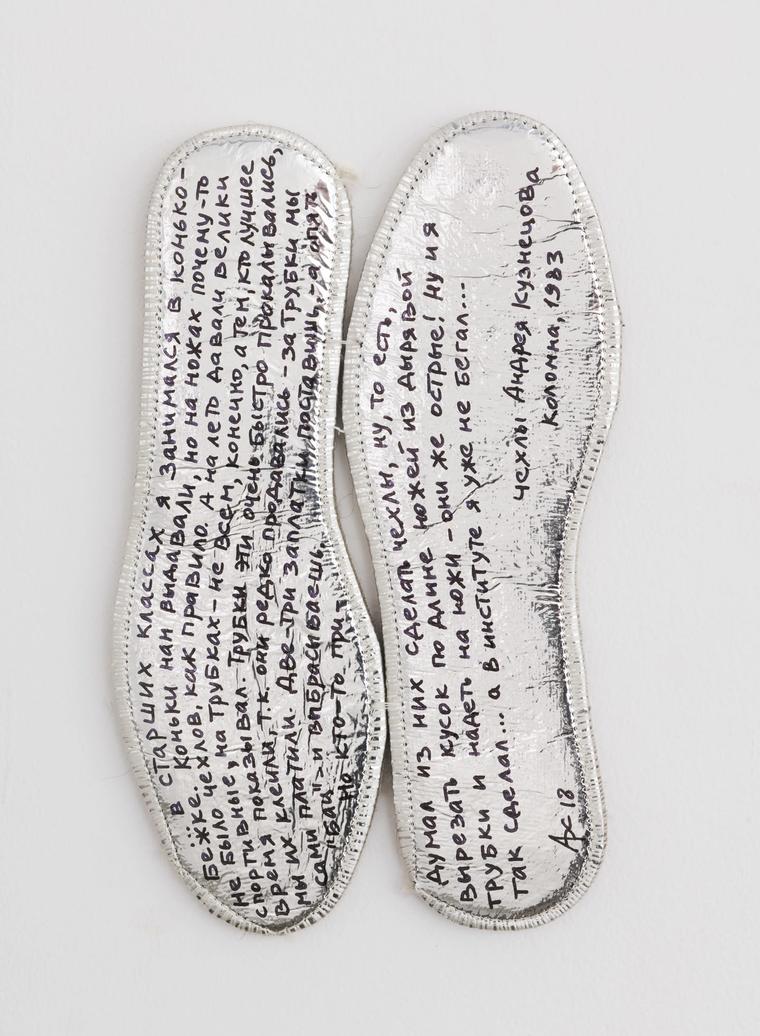 В старших классах я занимался в конько-
беже. Коньки нам выдавали, но на ножах почему-то
не было чехлов, как правило. А на лето давали велики
спортивные, на трубках - не всем, конечно, а тем, кто лучшее
время показывал. Трубки эти очень быстро прокалывались,
мы их клеили, т.к. они редко продавались - за трубки мы
сами платили. Две-три заплатки поставишь, - а опять
"бай" -> и выбрасываешь.
Но кто-то при-
думал из них сделать чехлы, ну, то есть,
вырезать кусок по длине ножей из дырявой
трубки и надеть на ножи - они же острые! Ну и я
так сделал... а в институте я уже не бегал...
чехлы Андрея Кузнецова
Коломна, 1983
18